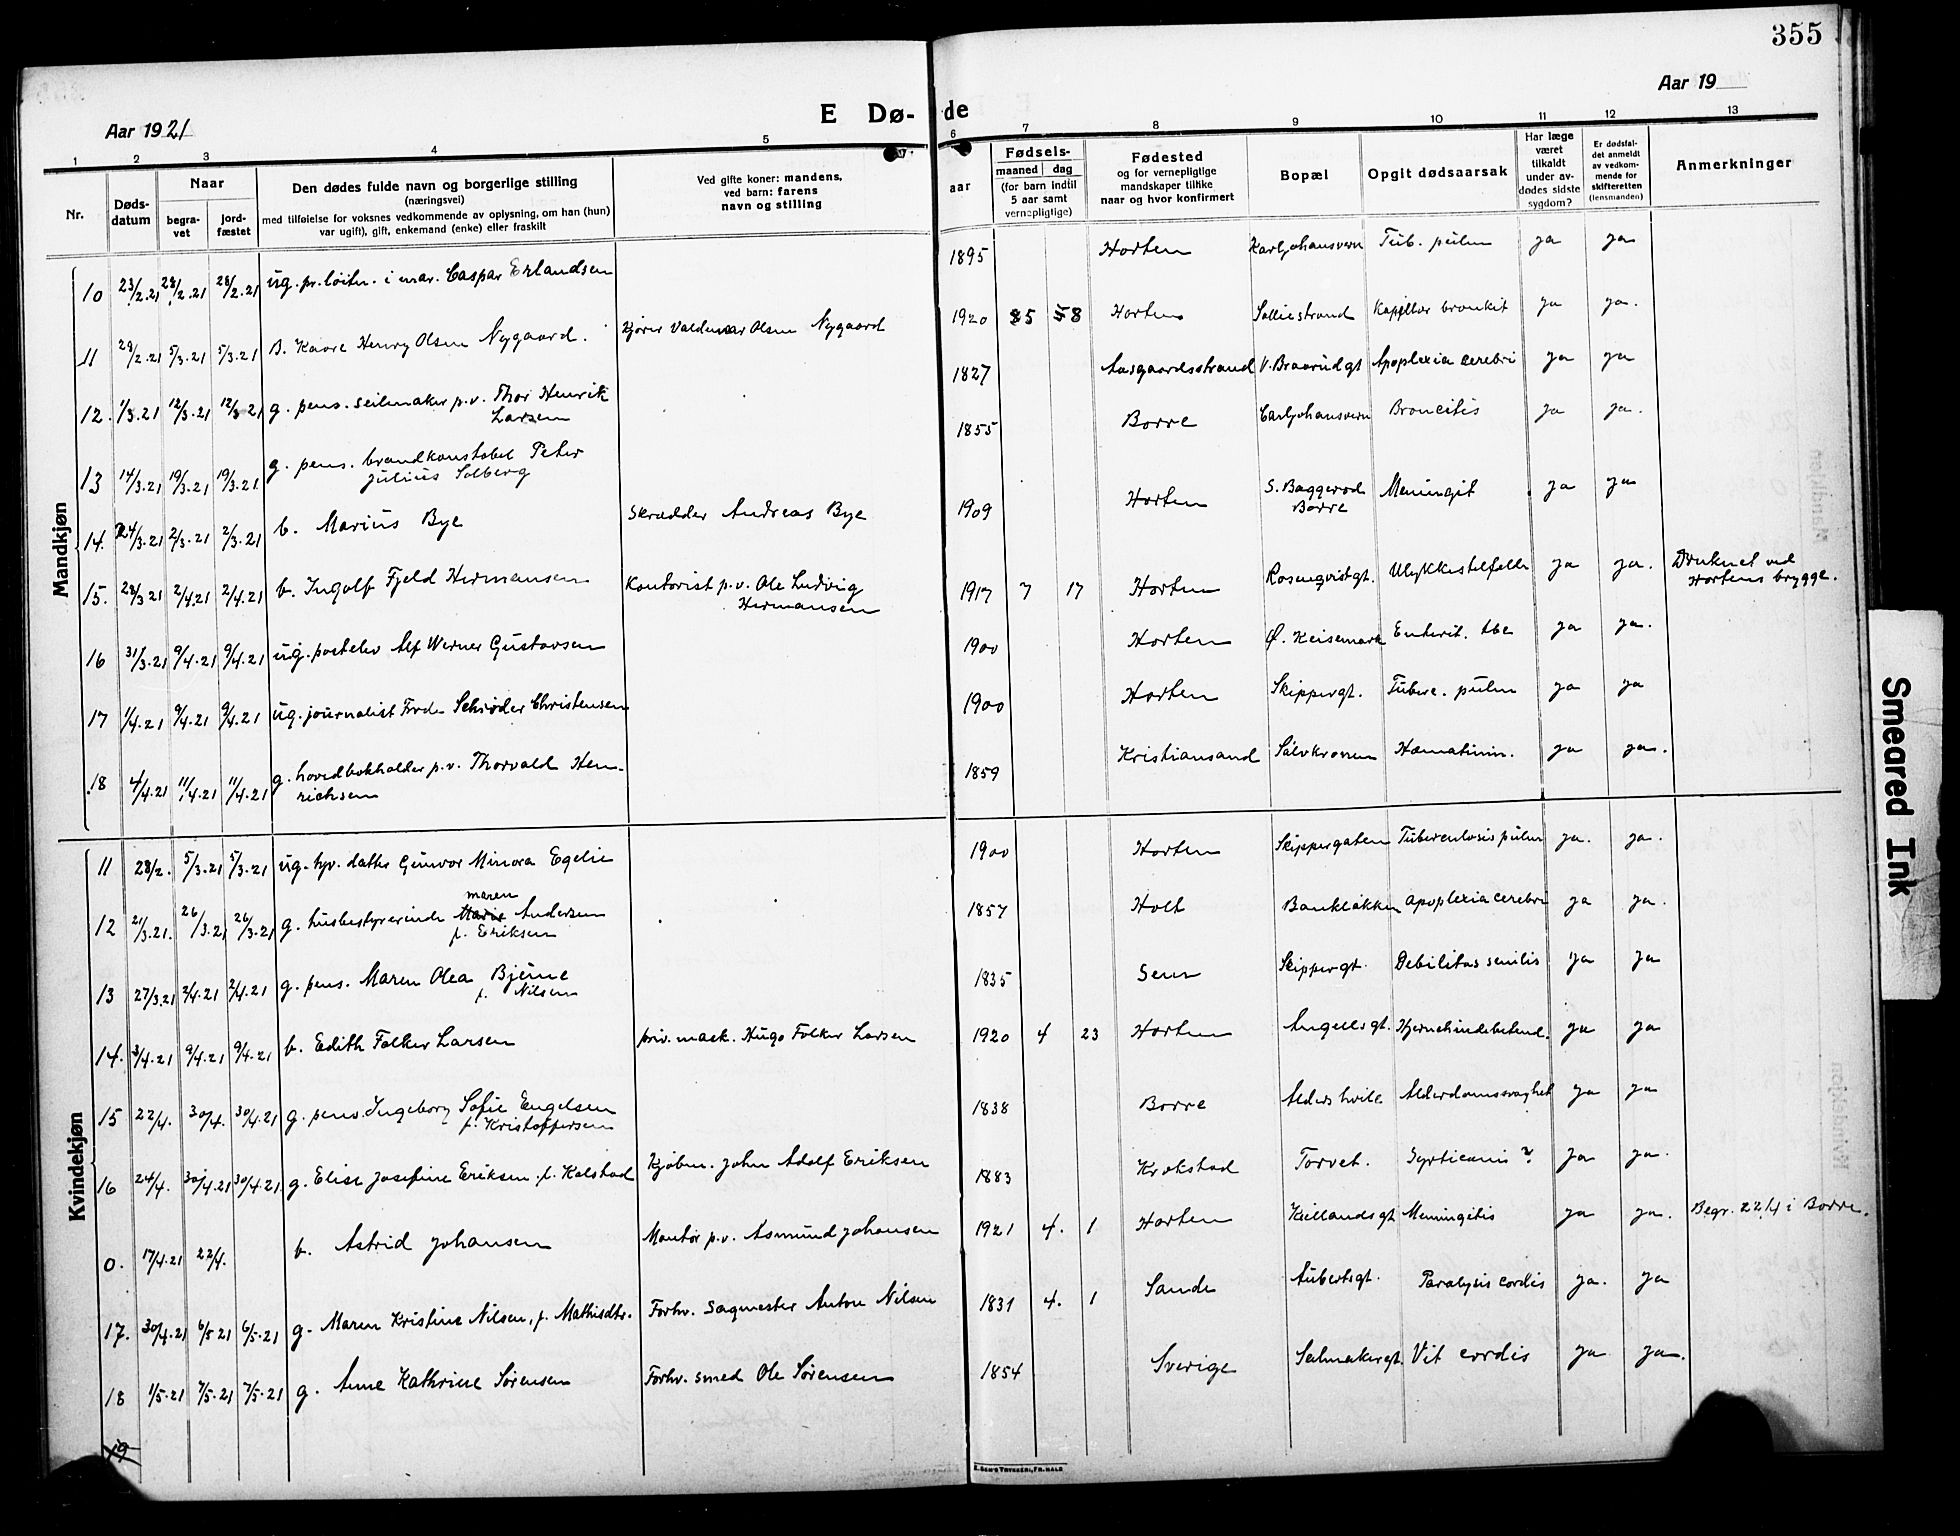 355
Aar 1921
E Dø-
de
Aar 19
1 2 3 4 5 6 7 8 9 10 11 12 13
Nr.
Døds-
datum
Naar
begra-
vet
jord-
fæstet
Den dødes fulde navn og borgerlige stilling
(næringsvei)
med tilføielse for voksnes vedkommende av oplysning, om han (hun)
var ugift), gift, enkemand (enke) eller fraskilt
Ved gifte koner: mandens,
ved barn: farens
navn og stilling
aar
Fødsels-
maaned dag
(for barn indtil
5 aar samt
vernepligtige)
Fødested
og for vernepligtige
mandskaper tillike
naar og hvor konfirmert
Bopæl
Opgit dødsaarsak
Har læge
været
tilkaldt
under av-
dødes sidste
sygdom?
Er dødsfal-
det anmeldt
av vedkom-
mende for
skifteretten
(lensmanden)
Anmerkninger
Mandkjøn
10 23/2.21 28/2.21 28/2.21 ug. pr. løitn. i mar. Caspar Erlandsen 1895 Horten Karljohansvern Tub. pulm ja ja
11 29/2.21 5/3.21 5/3.21 B. Kaare Henry Olsen Nygaard. Kjører Valdemar Olsen Nygaard 1920 5 8 Horten Solliestrand Kapillær bronkit ja ja.
12. 1/3.21 12/3.21 12/3 21 g. pens. seilmaker p.v. Thor Henrik 1827 Aasgaardsstrand V. Braarudgt Apoplexia cerebri ja ja
Larsen
13 14/3.21 19/3.21 19/3.21 g. pens. brandkonstabel Peter 1855 Borre Carljohansvern Broncitis ja ja.
Julius Solberg
14. 24/3.21 2/3.21 2/3.21 b. Marius Bye Skrædder Andreas Bye 1909 Horten S. Baggerød Meningit ja ja
Borre
15. 28/3 21 2/4.21 2/4.21 b. Ingolf Fjeld Hermansen Kontorist p.v. Ole Ludvig 1917 7 17 Horten Rosenqvistgt. Ulykkestilfelle ja ja. Druknet ved
Hermansen Hortens brygge.
16 31/3.21 9/4.21 9/4.21 ug. postelev Alf Werner Gustavsen 1900 Horten Ø. Keisemark Enterit. tbc ja ja.
17 1/4.21 9/4.21 9/4.21 ug. journalist Frode Schrøder Christensen 1900 Horten Skippergt. Tuberc. pulm ja ja
18 4/4.21 11/4.21 11/4.21 g. hovedbokholder p.v. Thorvald Hen- 1859 Kristiansand Sølvkronen Hæmaturim. ja ja.
richsen
Kvindekjøn
11 28/2. 5/3.21 5/3.21 ug. hjv. datter Gunvor Minora Egelie 1900 Horten Skippergaten Tuberculosis pulm ja. ja.
maren
12 21/3.21. 26/3.21 26/3.21 g. husbestyrerinde Marie Andersen 1857 Holt Bankløkken Apoplexia cerebri ja ja.
f. Eriksen
13 27/3.21 2/4.21 2/4.21 g. pens. Maren Olea Bjerne 1835 Sem Skippergt. Debilitas senilis ja ja
f. Nilsen
14. 3/4.21 9/4.21 9/4.21 b. Edith Falker Larsen priv. mask. Hugo Falker Larsen 1920 4 23 Horten Angellsgt. Hjernehindebetend. ja ja
15 22/4. 30/4. 30/4.21 g. pens. Ingeborg Sofie Engelsen 1838 Borre Aldershvile Alderdomssvaghet ja ja
f. Kristoffersen
16 24/4. 30/4.21 30/4.21 g. Elise Josefine Eriksen f. Kolstad Kjøbm. John Adolf Eriksen 1883 Krokstad Torvet. ? ja ja.
0. 17/4.21 22/4. b. Astrid Johansen Montør p.v. Asmund Johansen 1921 4. 1 Horten Kiellandsgt Meningitis ja ja. Begr. 22/4 i Borre.
17. 30/4.21 6/5 21 6/5.21 g. Maren Kristine Nilsen, f. Mathisdtr. Forhv. sagmester Anton Nilsen 1831 4. 1 Sande Aubertsgt. Paralysis cordis ja. ja
18 1/5.21 7/5.21 7/5.21 g. Anne Kathrine Sørensen Forhv. smed Ole Sørensen 1854 Sverige Seilmakergt. Vit cordis ja ja.
19
Smeared Ink